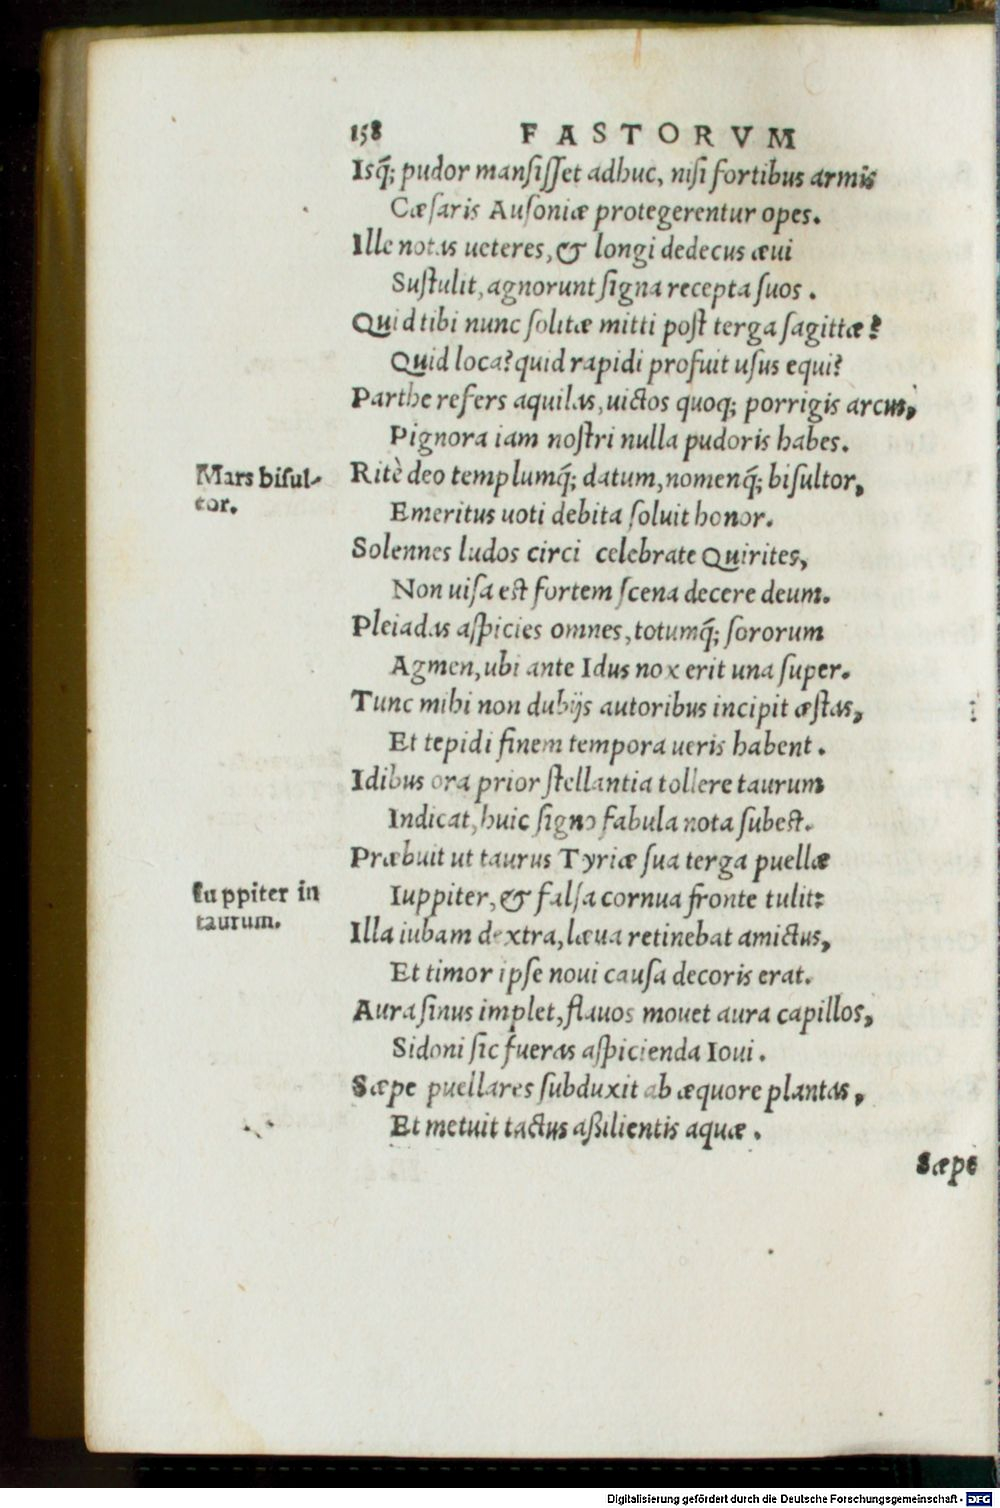 158 FASTORVM
Isq́; pudor mansiſſet adhuc, niſi fortibus armis
Cæſaris Auſoniæ protegerentur opes.
Ille notas ueteres, & longi dedecus æui
Suſtulit, agnorunt ſigna recepta ſuos.
Quid tibi nunc ſolitæ mitti poſt terga ſagittæ?
Quid loca? quid rapidi profuit uſus equi?
Parthe refers aquilas, uictos quoq; porrigis arcus,
Pignora iam noſtri nulla pudoris habes.
Mars biſul-
tor.
Ritè deo templumq́; datum, nomenq́; biſultor,
Emeritus uoti debita ſoluit honor.
Solennes ludos circi celebrate Quirites,
Non uiſa est fortem ſcena decere deum.
Pleiadas aſpicies omnes, totumq́; ſororum
Agmen, ubi ante Idus nox erit una ſuper.
Tunc mihi non dubijs autoribus incipit æſtas,
Et tepidi finem tempora ueris habent.
Idibus ora prior ſtellantia tollere taurum
Indicat, huic ſigno fabula nota ſubest.
Præbuit ut taurus Tyriæ ſua terga puellæ
Iuppiter in
taurum.
Iuppiter, & falſa cornua fronte tulit:
Illa iubam dextra, læua retinebat amictus,
Et timor ipſe noui cauſa decoris erat.
Aura ſinus implet, flauos mouet aura capillos,
Sidoni ſic fueras aſpicienda Ioui.
Sæpe puellares ſubduxit ab æquore plantas,
Et metuit tactus aßilientis aquæ.
Sæpe
Digitalisierung gefördert durch die Deutsche Forschungsgemeinschaft - DFG